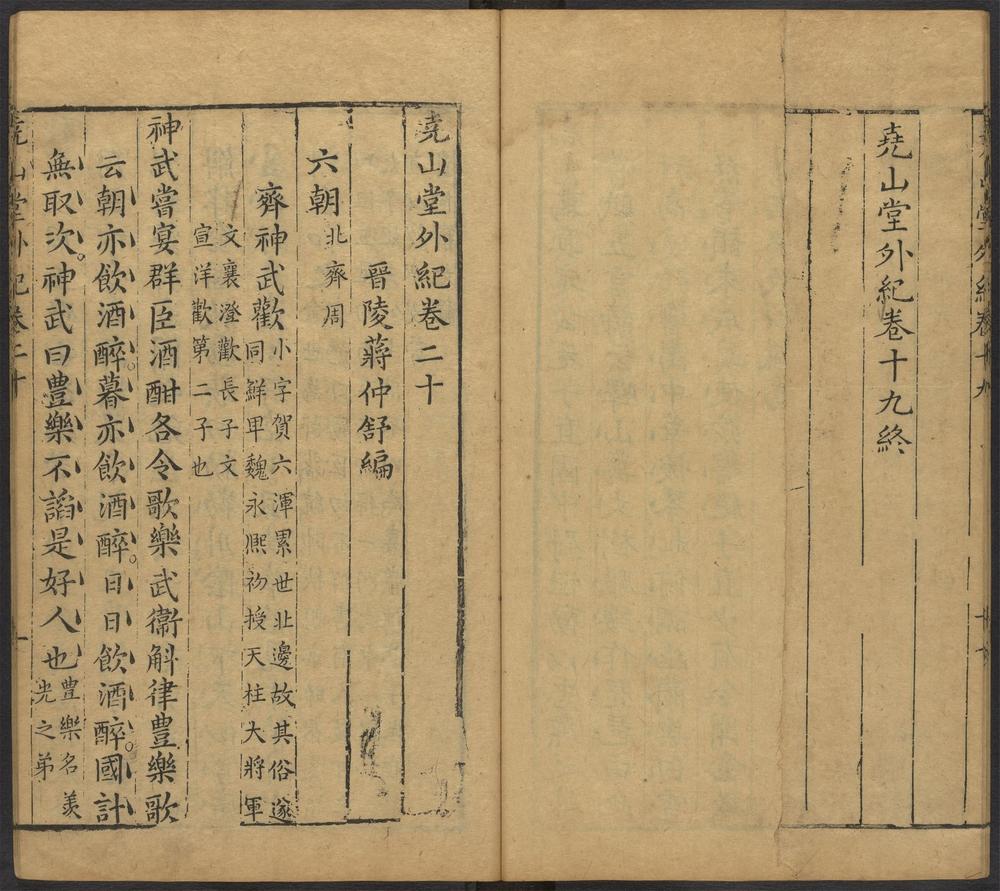 堯山堂外紀卷十九終
堯山堂外紀卷二十
晉陵蔣仲舒編
六朝北齊周
齊神武歡小字賀六渾累世北邊故其俗遂
同鮮卑魏永熈初授天柱大將軍
文襄澄歡長子文
宣洋歡第二子也
神武嘗宴群臣酒酣各令歌樂武衞斛律豊樂歌
云朝亦飲酒醉。暮亦飲酒醉。日日飲酒醉。國計
無取次。神武曰豊樂不謟是好人也豊樂名羨
光之弟
堯山堂外紀卷二十
一